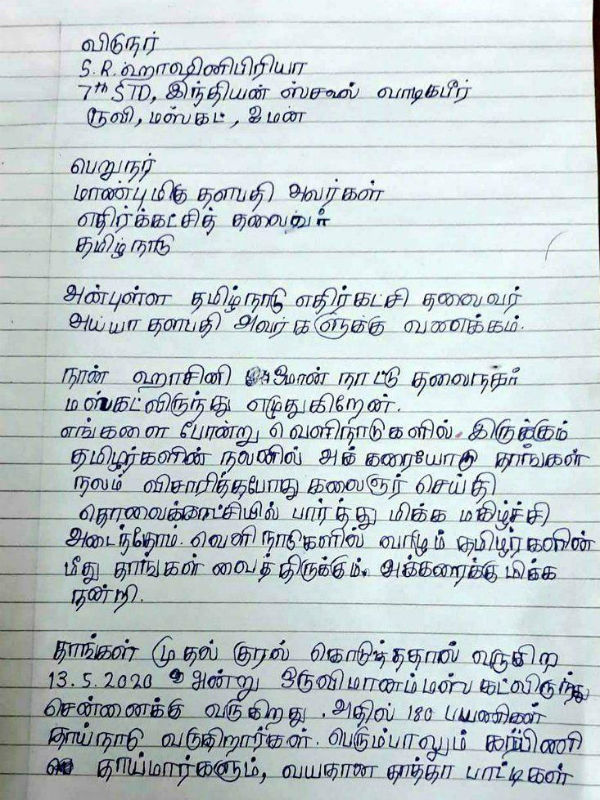 விடுநர்
S.R.ஹாஷினிபிரியா
7th STD, இந்தியன் ஸ்சூல் வாடிகபீர்
ரூவி, மஸ்கட், ஓமன்
பெறுநர்
மாண்புமிகு தளபதி அவர்கள்
எதிர்க்கட்சித் தலைவர்
தமிழ்நாடு
அன்புள்ள தமிழ்நாடு எதிர்கட்சி தலைவர்
அய்யா தளபதி அவர்களுக்கு வணக்கம்.
நான் ஹாசினி ஓமான் நாட்டு தலைநகர்
மஸ்கட்லிருந்து எழுதுகிறேன்.
எங்களை போன்று வெளிநாடுகளில் இருக்கும்
தமிழர்களின் நலனில் அக்கரையோடு தாங்கள்
நலம் விசாரித்தபோது கலைஞர் செய்தி
தொலைக்காட்சியில் பார்த்து மிக்க மகிழ்ச்சி
அடைந்தோம். வெளிநாடுகளில் வாழும் தமிழர்களின்
மீது தாங்கள் வைத்திருக்கும் அக்கரைக்கு மிக்க
நன்றி.
தாங்கள் முதல் குரல் கொடுத்ததால் வருகிற
13.5.2020 அன்று ஒருவிமானம் மஸ்கட்லிருந்து
சென்னைக்கு வருகிறது. அதில் 180 பயணிகள்
தாய்நாடு வருகிறார்கள். பெரும்பாலும் கர்பிணி
தாய்மார்களும், வயதான தாத்தா பாட்டிகள்